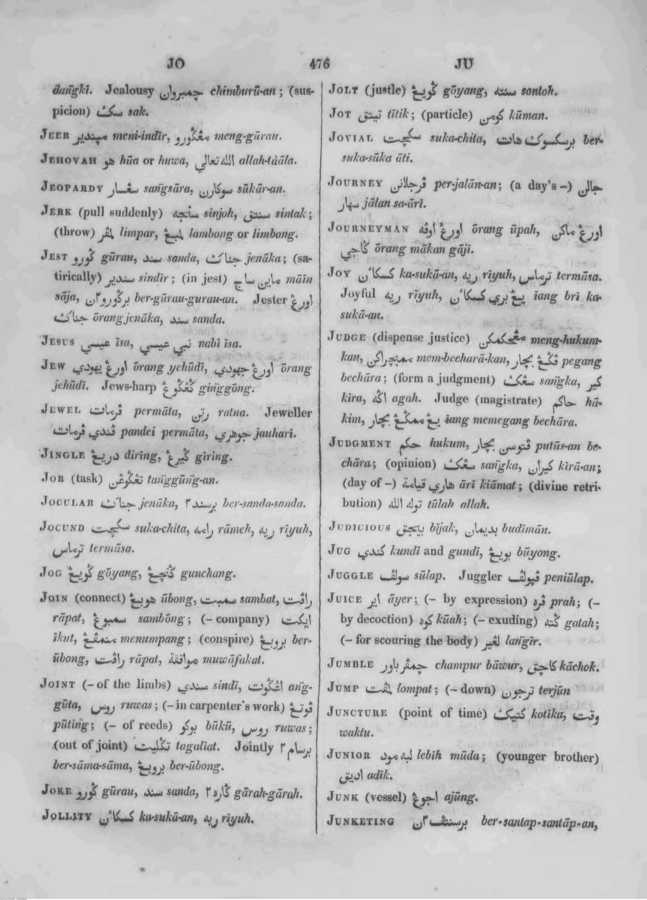 JO 476 JU
dangki. Jealousy چمبروان chimburū-an; (sus-
picion) سک sak.
JEER meni-indir, meng-gūrau.
JEHOVAH هو hūa or huwa, الله تعالي allah-tāāla.
JEOPARDY sangsāra, سوکارن sūkār-an.
JERK (pull suddenly) sinjoh, sintak;
(throw) limpar, lambong or limbong.
JEST ګورو gūrau, سند sanda, جناک jenāka; (sa-
tirically) سندير sindir; (in jest) ماين ساج māin
sāja, ber-gūrau-gurau-an. Jester اورڠ
جناک ōrang jenāka, سند sanda.
JESUS عيسي īsa, نبي عيسي nabi īsa.
JEW اورڠ يهودي ōrang yehūdī, اورڠ جهودي ōrang
jehūdī. Jews-harp ginggōng.
JEWEL فرمات permāta, رتن ratna. Jeweller
ڤندي فرمات pandei permāta, جوهري jauhari.
JINGLE دريڠ diring, ګيرڠ giring.
JOB (task) tanggūng-an.
JOCULAR جناک jenāka, ber-sanda-sanda.
JOCUND سکچيت suka-chita, رامه rāmeh, ريه riyuh,
ترماس termāsa.
JOG ګويڠ gōyang, ګنچڠ gunchang.
JOIN (connect) هوبڠ ūbong, سمبت sambat, راڤت
rāpat, سمبوڠ sambōng; (– company) ايکت
īkut, menumpang; (conspire) بروبڠ ber-
ūbong, راڤت rāpat, موافقة muwāfakat.
JOINT (– of the limbs) سندي sindī, اڠګوت ang-
gūta, روس ruwas; (– in carpenter's work) ڤوتڠ
pūting; (– of reeds) بوکو būkū, روس ruwas;
(out of joint) تګليت tagaliat. Jointly برسام٢
ber-sāma-sāma, بروبڠ ber-ūbong.
JOKE ګورو gūrau, سند sanda, ګاره٢ gārah-gārah.
JOLLITY کسکان ka-sukā-an, ريه riyuh.
JOLT (justle) ګويڠ gōyang, سنته sontoh.
JOT تيتق tītik; (particle) کومن kūman.
JOVIAL سکچيت suka-chita, ber-
suka-sūka āti.
JOURNEY ڤرجلانن per-jalān-an; (a day's –) جالن
سهاري jālan sa-āri.
JOURNEYMAN اورڠ اوڤه ōrang ūpah, اورڠ ماکن
ګاجي ōrang mākan gāji.
JOY کسکان ka-sukā-an, ريه riyuh, ترماس termāsa.
Joyful ريه riyuh, يڠ بري کسکان iang brī ka-
sukā-an.
JUDGE (dispense justice) meng-hukum-
kan, mem-becharā-kan, ڤڬڠ بچار pegang
bechāra; (form a judgment) سڠک sangka, کير
kīra, اګه agah. Judge (magistrate) حاکم hā-
kim, يڠ ممڬڠ بچار iang memegang bechāra.
JUDGMENT حکم hukum, ڤتوسن بچار putūs-an be-
chāra; (opinion) سڠک sangka, کيران kīrā-an;
(day of –) هاري قيامة āri kiāmat; (divine retri-
bution) توله الله tūlah allah.
JUDICIOUS بيجق bījak, بديمان budīmān.
JUG کندي kundī and gundī, بويڠ būyong.
JUGGLE سولڤ sūlap. Juggler ڤنيولڤ peniūlap.
JUICE اير āyer; (– by expression) ڤره prah; (–
by decoction) کوه kūah; (– exuding) ګته gatah;
(– for scouring the body) لڠير langīr.
JUMBLE چمڤر باور champur bāwur, کاچق kāchok.
JUMP لمڤت lompat; (– down) ترجون terjūn
JUNCTURE (point of time) کتيک kotīka, وقت
waktu.
JUNIOR لبه مود lebih mūda; (younger brother)
اديق adik.
JUNK (vessel) اجوڠ ajūng.
JUNKETING ber-santap-santāp-an,